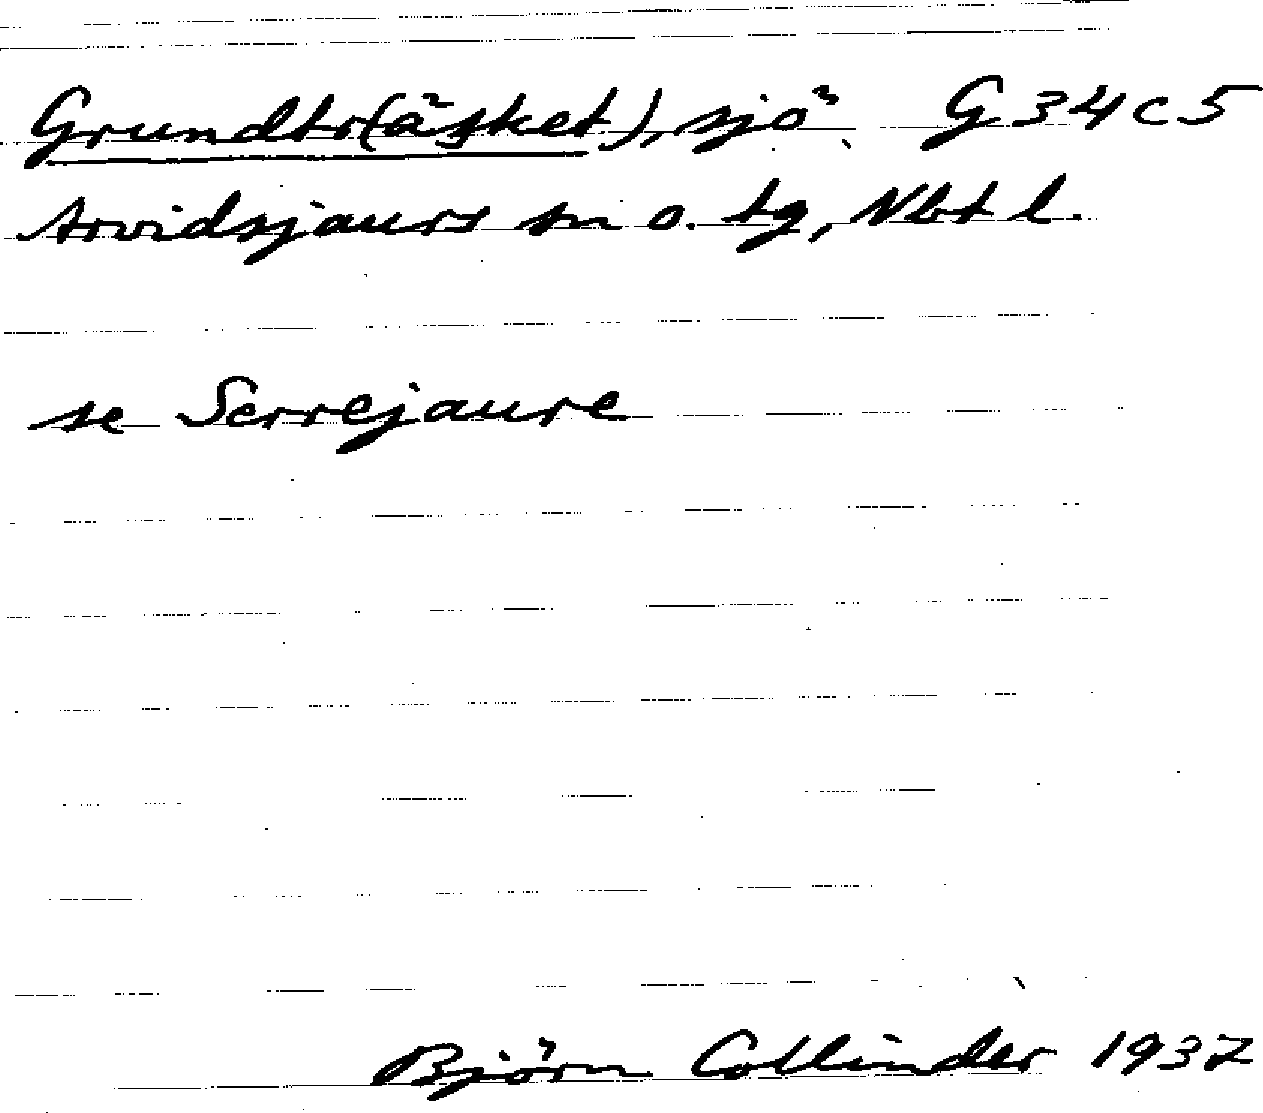 Grundtr(äsket), sjö G 34 c 5
Arvidsjaurs sn o. tg, Nbt l.
se Serrejaure
Björn Collinder 1937